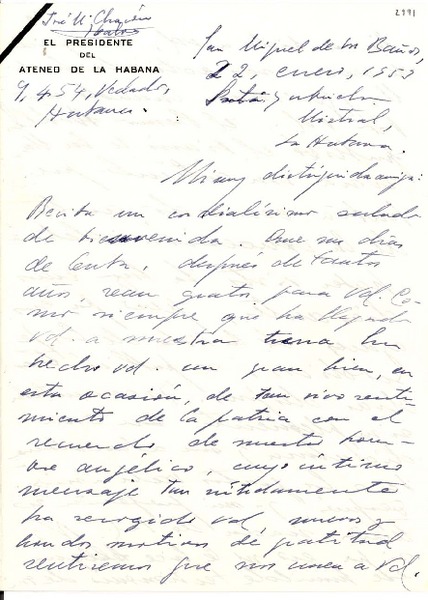 2991
José Mª Chacón
y Calvo
EL PRESIDENTE
DEL
ATENEO DE LA HABANA
9, 454, Vedado,
Habana.
San Miguel de los Baños,
22, enero, 1953
Gabriela
Mistral,
La Habana.
Muy distinguida amiga:
Reciba un cordialísimo saludo
de bienvenida. Que sus días
de Cuba, después de tantos
años, sean gratos para Vd. Co-
mo siempre que ha llegado
Vd. a nuestra tierra ha
hecho Vd. un gran bien, en
esta ocasión, de tan vivo senti-
miento de la patria con el
recuerdo de nuestro hom-
bre angélico, cuyo íntimo
mensaje tan nítidamente
ha recogido Vd. nuevos y
hondos motivos de gratitud
sentiremos que nos unen a Vd.